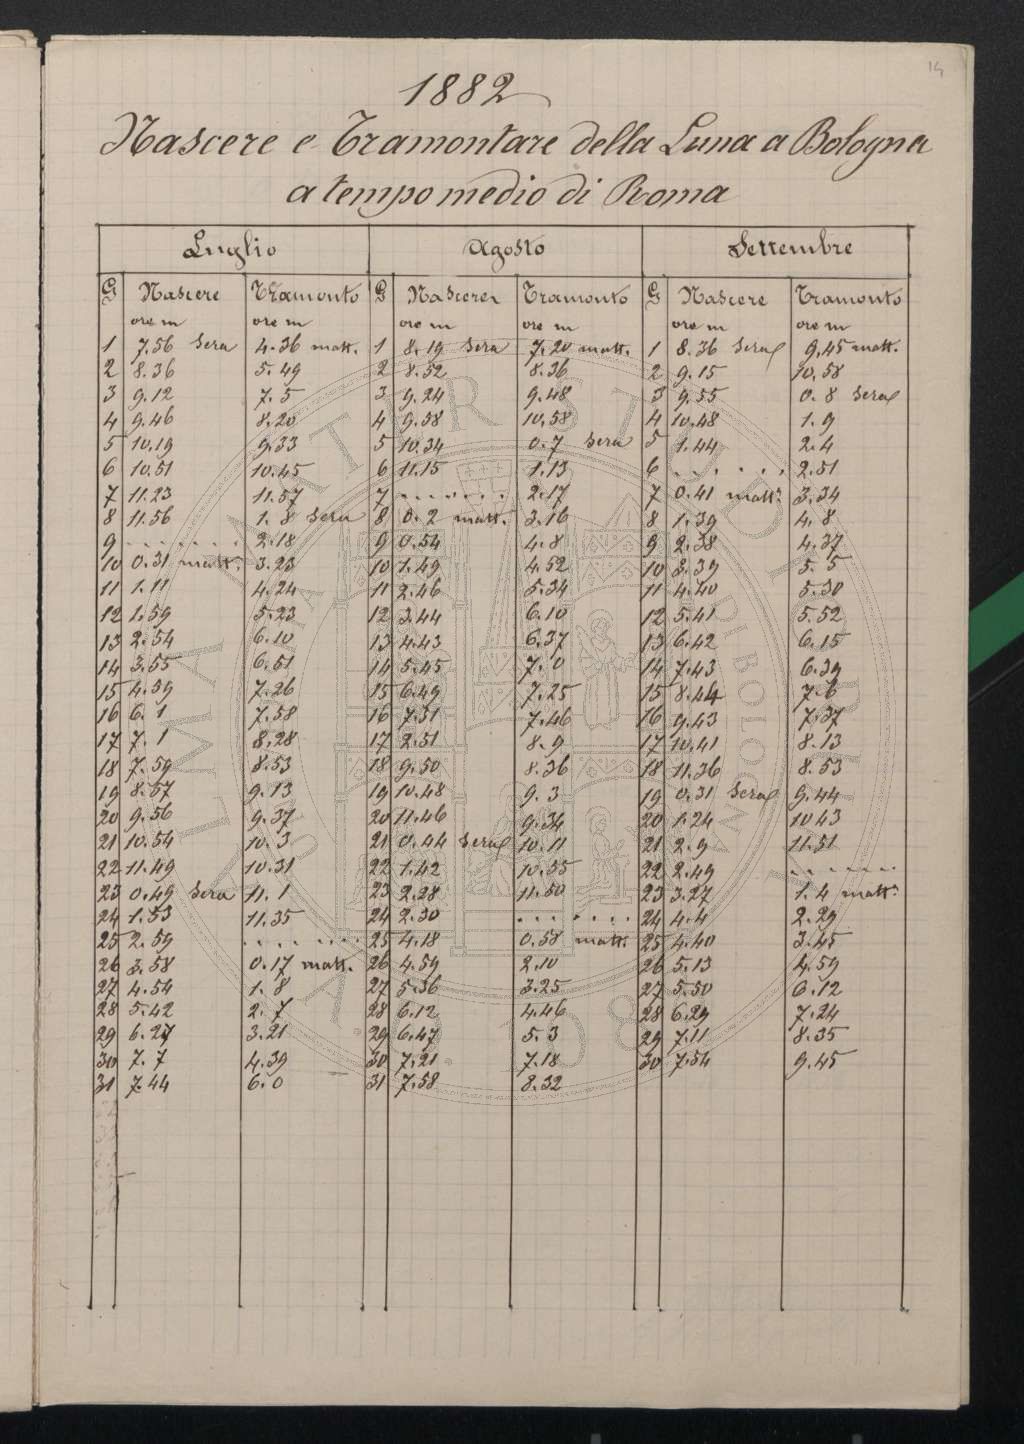 14
1882
Nascere e Tramontare della Luna a Bologna
a tempo medio di Roma
Luglio Agosto Settembre
G Nascere Tramonto G Nascere Tramonto G Nascere Tramonto
ore m ore m ore m ore m ore m ore m
1 7.56 Sera 4.36 matt. 1 8.19 Sera 7.20 matt. 1 8.36 Sera 9.45 matt.
2 8.36 5.49 2 8.52 8.36 2 9.15 10.58
3 9.12 7.5 3 9.24 9.48 3 9.55 0.8 Sera
4 9.46 8.20 4 9.58 10.58 4 10.48 1.9
5 10.19 9.33 5 10.34 0.7 Sera 5 1.44 2.4
6 10.51 10.45 6 11.15 1.13 6 ....... 2.51
7 11.23 11.57 7 ....... 2.17 7 0.41 matt. 3.34
8 11.56 1.8 Sera 8 0.2 matt. 3.16 8 1.39 4.8
9 ....... 2.18 9 0.54 4.8 9 2.38 4.37
10 0.31 matt. 3.23 10 1.49 4.52 10 3.39 5.5
11 1.11 4.24 11 2.46 5.34 11 4.40 5.30
12 1.59 5.23 12 3.44 6.10 12 5.41 5.52
13 2.54 6.10 13 4.43 6.37 13 6.42 6.15
14 3.55 6.51 14 5.45 7.0 14 7.43 6.39
15 4.59 7.26 15 6.49 7.25 15 8.44 7.6
16 6.1 7.58 16 7.51 7.46 16 9.43 7.37
17 7.1 8.28 17 2.51 8.9 17 10.41 8.13
18 7.59 8.53 18 9.50 8.36 18 11.36 8.53
19 8.57 9.13 19 10.48 9.3 19 0.31 Sera 9.44
20 9.56 9.37 20 11.46 9.34 20 1.24 10 43
21 10.54 10.3 21 0.44 Sera 10.11 21 2.9 11.51
22 11.49 10.31 22 1.42 10.55 22 2.49 .......
23 0.49 Sera 11.1 23 2.28 11.50 23 3.27 1.4 matt.
24 1.53 11.35 24 2.30 ....... 24 4.4 2.29
25 2.59 ....... 25 4.18 0.58 matt. 25 4.40 3.45
26 3.58 0.17 matt. 26 4.59 2.10 26 5.13 4.59
27 4.54 1.8 27 5.36 3.25 27 5.50 6.12
28 5.42 2.7 28 6.12 4.46 28 6.29 7.24
29 6.27 3.21 29 6.47 5.3 29 7.11 8.35
30 7.7 4.39 30 7.21 7.18 30 7.54 9.45
31 7.44 6.0 31 7.58 8.32
ALMA MATER STUDIORUM
A.D. 1088